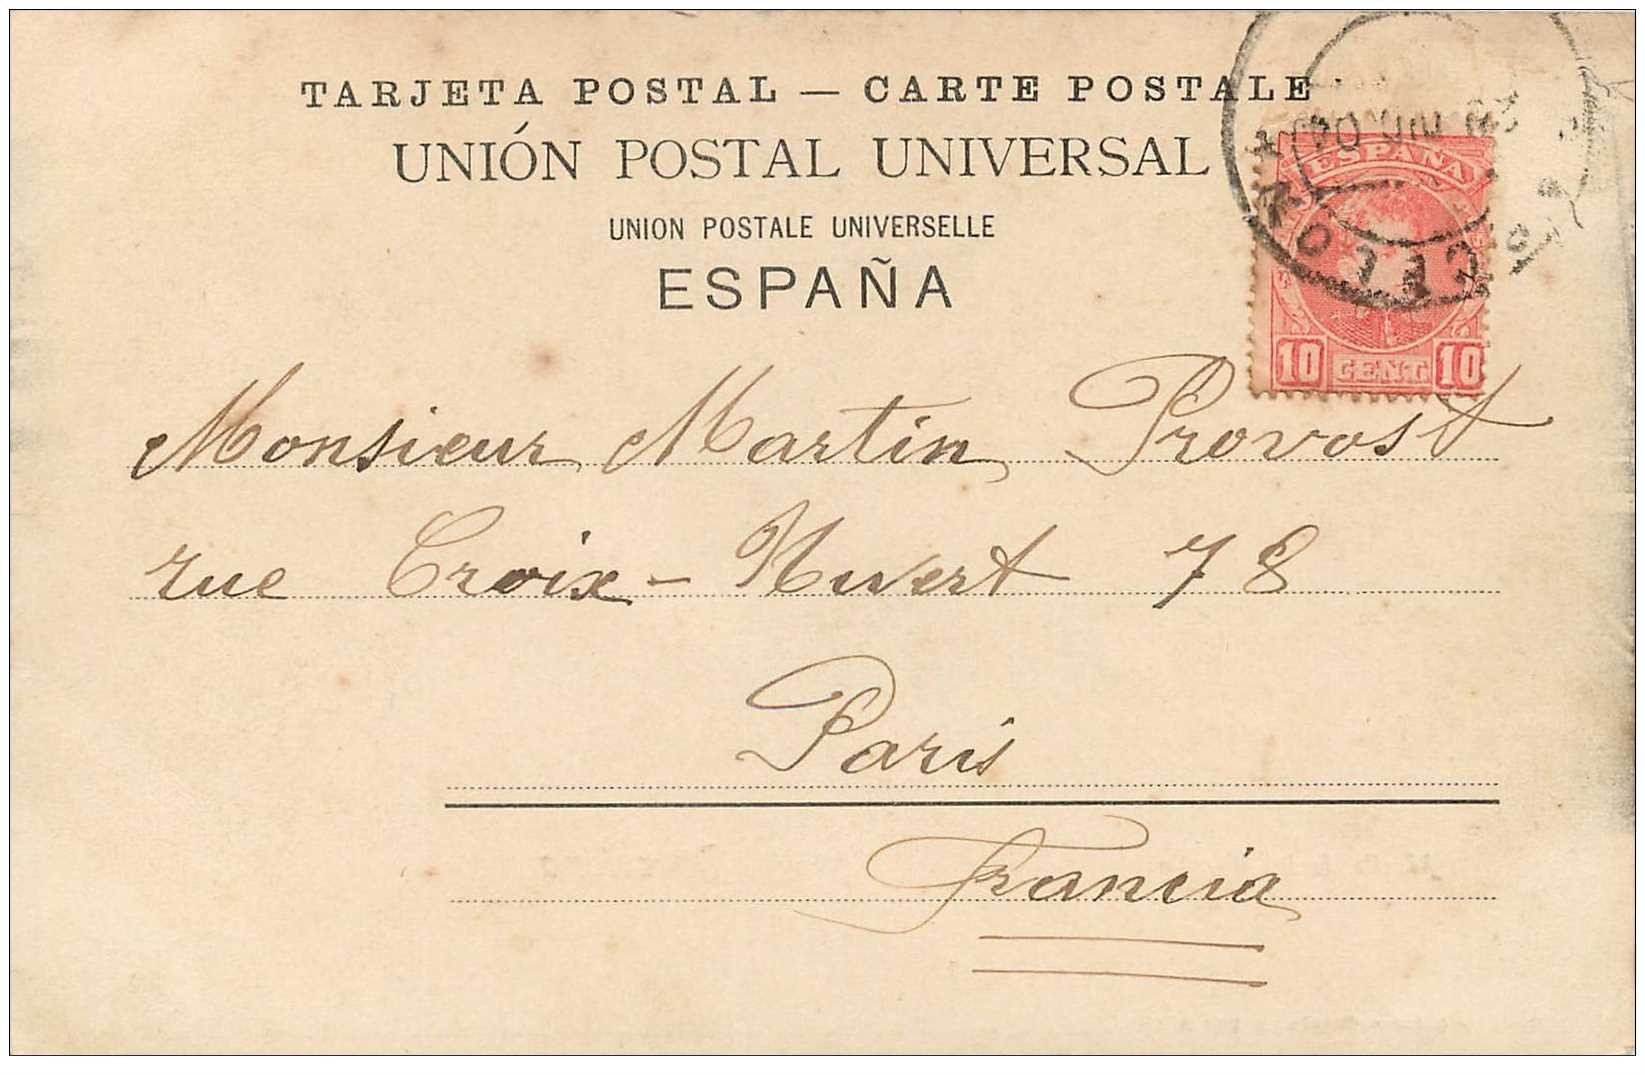 TARJETA POSTAL — CARTE POSTALE
UNIÓN POSTAL UNIVERSAL
UNION POSTALE UNIVERSELLE
ESPAÑA
ESPAÑA
10 CENT. 10
Monsieur Martin Provost
rue Croix - Nivert 78
Paris
Francia